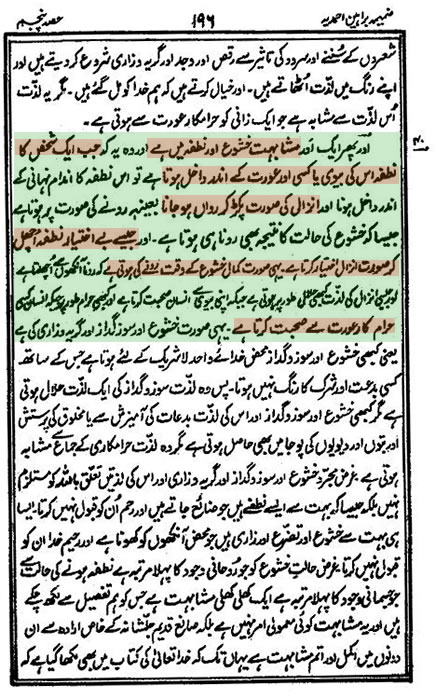 ضمیمہ براہین احمدیہ ۱۹۶ حصہ پنجم
شعروں کے سُننے اور سرود کی تاثیر سے رقص اور وجد اور گریہ و زاری شروع کر دیتے ہیں اور
اپنے رنگ میں لذت اُٹھاتے ہیں۔ اور خیال کرتے ہیں کہ ہم خدا کو مل گئے ہیں۔ مگر یہ لذت
اُس لذت سے مشابہ ہے جو ایک زانی کو حرامکار عورت سے ہوتی ہے۔
اور پھر ایک اور مشابہت خشوع اور نطفہ میں ہے اور وہ یہ کہ جب ایک شخص کا
نطفہ اس کی بیوی یا کسی اور عورت کے اندر داخل ہوتا ہے تو اس نطفہ کا اندام نہانی کے
اندر داخل ہونا اور انزال کی صورت پکڑ کر رواں ہو جانا بعینہٖ رونے کی صورت پر ہوتا ہے
جیسا کہ خشوع کی حالت کا نتیجہ بھی رونا ہی ہوتا ہے۔ اور جیسے بے اختیار نطفہ اُچھل
کر صورت انزال اختیار کرتا ہے۔ یہی صورت کمال خشوع کے وقت رونے کی ہوتی ہے کہ رونا آنکھوں سے اُچھلتا ہے
اور جیسی انزال کی لذت کبھی حلال طور پر ہوتی ہے جبکہ اپنی بیوی سے انسان صحبت کرتا ہے اور کبھی حرام طور پر جبکہ انسان کسی
حرام کار عورت سے صحبت کرتا ہے۔ یہی صورت خشوع اور سوز و گداز اور گریہ و زاری کی ہے
یعنی کبھی خشوع اور سوز و گداز محض خدائے واحد لاشریک کے لئے ہوتا ہے جس کے ساتھ
کسی بدعت اور شرک کا رنگ نہیں ہوتا۔ پس وہ لذت سوز و گداز کی ایک لذت حلال ہوتی
ہے مگر کبھی خشوع اور سوز و گداز اور اس کی لذت بدعات کی آمیزش سے یا مخلوق کی پرستش
اور بتوں اور دیویوں کی پوجا میں بھی حاصل ہوتی ہے مگر وہ لذت حرامکاری کے جماع سے مشابہ
ہوتی ہے۔ غرض مجرد خشوع اور سوز و گداز اور گریہ و زاری اور اس کی لذتیں تعلق باللہ کو مستلزم
نہیں بلکہ جیسا کہ بہت سے ایسے نطفے ہیں جو ضائع جاتے ہیں اور رحم اُن کو قبول نہیں کرتا۔ ایسا
ہی بہت سے خشوع اور تضرع اور زاری ہیں جو محض آنکھوں کو کھونا ہے اور رحیم خدا ان کو
قبول نہیں کرتا۔ غرض حالت خشوع کو جو روحانی وجود کا پہلا مرتبہ ہے نطفہ ہونے کی حالت سے
جو جسمانی وجود کا پہلا مرتبہ ہے ایک کھلی کھلی مشابہت ہے جس کو ہم تفصیل سے لکھ چکے
ہیں اور یہ مشابہت کوئی معمولی امر نہیں ہے بلکہ صانع قدیم جلّ شانہٗ کے خاص ارادہ سے ان
دونوں میں اکمل اور اتم مشابہت ہے یہاں تک کہ خدا تعالیٰ کی کتاب میں بھی لکھا گیا ہے کہ